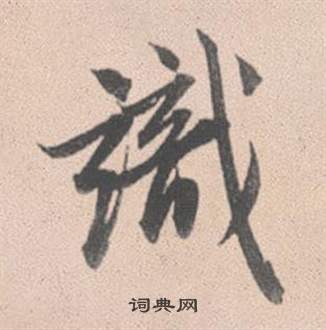 識
词典网